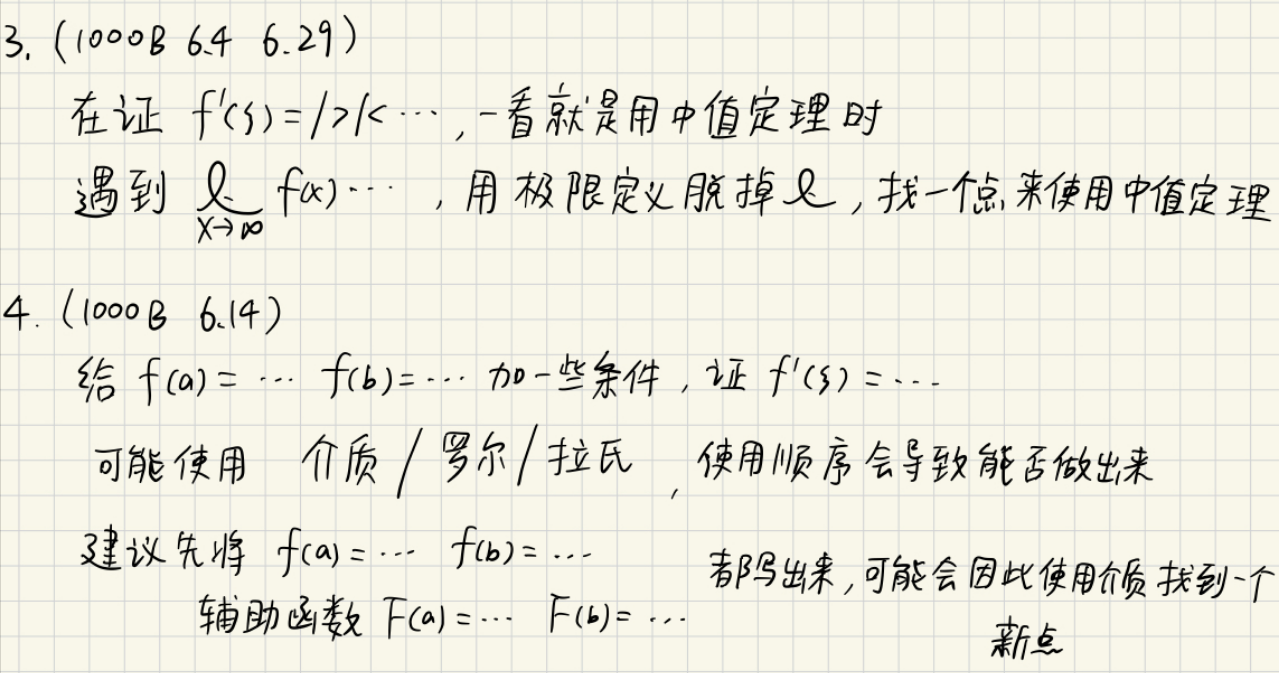 3. (1000B 6.4 6.29)
在证 f'(ξ)=/>/<…,一看就是用中值定理时
遇到 l f(x)…,用极限定义脱掉 l,找一个点来使用中值定理
x→∞
4. (1000B 6.14)
给 f(a)=… f(b)=… 加一些条件,证 f'(ξ)=…
可能使用 介质/罗尔/拉氏,使用顺序会导致能否做出来
建议先将 f(a)=… f(b)=…
都写出来,可能会因此使用介质找到一个
辅助函数 F(a)=… F(b)=…
新点